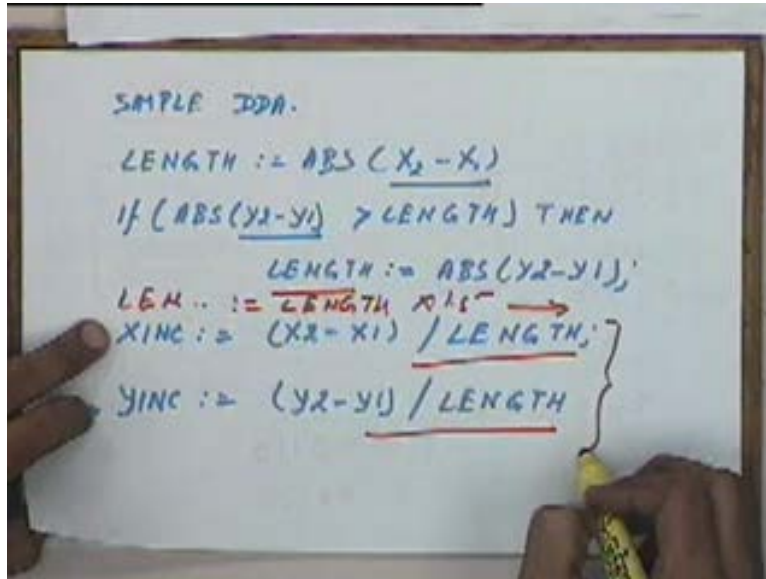 SIMPLE DDA.
LENGTH := ABS (X2 - X1)
If (ABS(Y2-Y1) > LENGTH) THEN
LENGTH := ABS (Y2-Y1);
LEN.. := LENGTH
XINC := (X2-X1) / LENGTH;
YINC := (Y2-Y1) / LENGTH